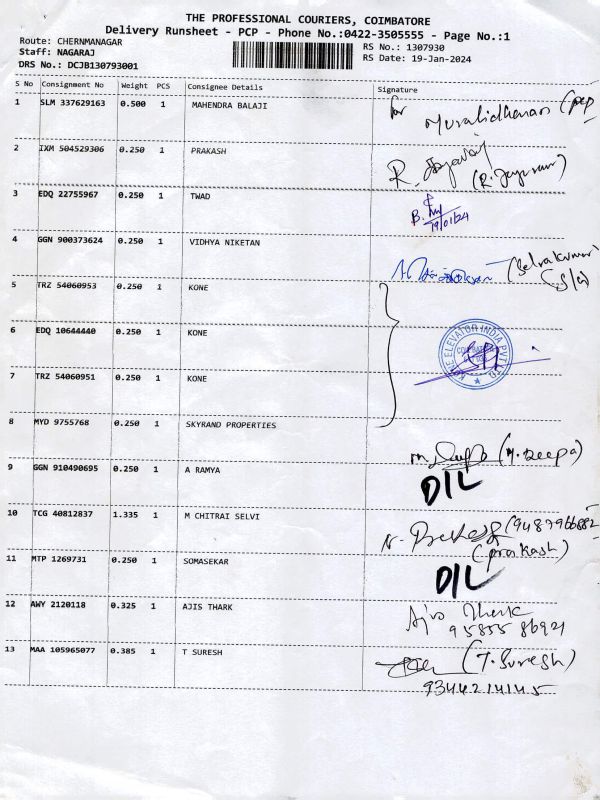 THE PROFESSIONAL COURIERS, COIMBATORE
Delivery Runsheet - PCP - Phone No.:0422-3505555 - Page No.:1
Route: CHERNMANAGAR
RS No.: 1307930
Staff: NAGARAJ
RS Date: 19-Jan-2024
DRS No.: DCJB130793001
S No Consignment No Weight PCS Consignee Details Signature
1 SLM 337629163 0.500 1 MAHENDRA BALAJI for Muralidharan
2 IXM 504529306 0.250 1 PRAKASH R.
3 EDQ 22755967 0.250 1 TWAD 19/01/24
4 GGN 900373624 0.250 1 VIDHYA NIKETAN (Selvakumar
5 TRZ 54060953 0.250 1 KONE S/G)
6 EDQ 10644440 0.250 1 KONE KONE ELEVATOR INDIA PVT
7 TRZ 54060951 0.250 1 KONE
8 MYD 9755768 0.250 1 SKYRAND PROPERTIES M. Deepa (M. Deepa)
9 GGN 910490695 0.250 1 A RAMYA D/L
10 TCG 40812837 1.335 1 M CHITRAI SELVI (9487966882
(prakash)
11 MTP 1269731 0.250 1 SOMASEKAR D/L
12 AWY 2120118 0.325 1 AJIS THARK Ajis Thark
95855 86921
13 MAA 105965077 0.385 1 T SURESH (T. Suresh)
9344214145